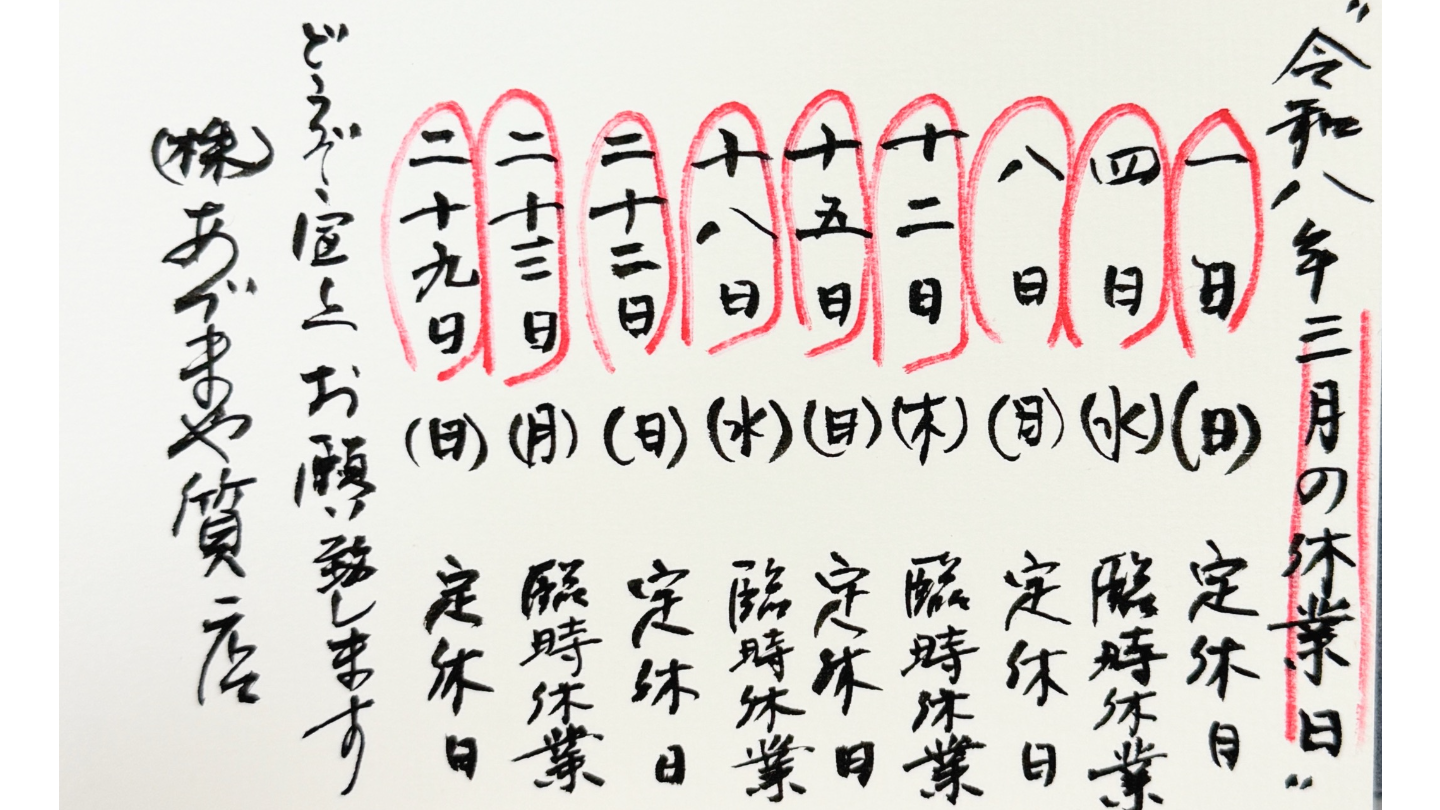 〝令和八年三月の休業日〟
一日(日)定休日
四日(水)臨時休業
八日(日)定休日
十二日(木)臨時休業
十五日(日)定休日
十八日(水)臨時休業
二十二日(日)定休日
二十三日(月)臨時休業
二十九日(日)定休日
どうぞ宜しくお願い致します
(株)あづまや質店